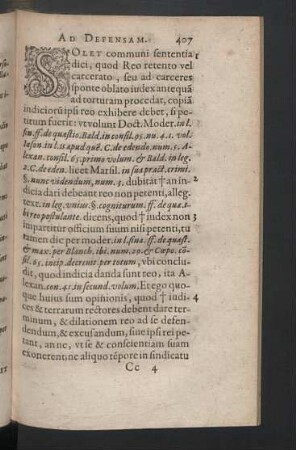 AD DEFENSAM. 407
SOLET communi sententia 1
dici, quod Reo retento vel
carcerato, seu ad carceres
sponte oblato iudex antequã
ad torturam procedat, copiã
indiciorũ ipsi reo exhibere debet, si pe-
titum fuerit: vt volunt Doct. Modet. in l.
fin. ff. de quæstio. Bald. in consil. 95. nu. 4. 1. vol.
Iason. in l. 11 apud quẽ. C. de edendo. num. 5. A-
lexan. consil. 65. primo volum. & Bald. in leg.
2. C. de eden. licet Marsil. in sua pract. crimi.
§. nunc videndum, num. 3. dubitat † an in- 2
dicia dari debeant reo non petenti, alleg.
text. in leg. vnius. §. cogniturum. ff. de quæ. v-
bi reo postulante. dicens, quod † index non 3
impartitur officium suum nisi petenti, tu
tamen dic per moder. in l. fin. ff. de quæst.
& max. per Blanch. ibi. num. 29. & Capo. cõ-
sil. 65. incip. decreuit per totum, vbi conclu-
dit, quod indicia danda sunt reo, ita A-
lexan. con. 42. in secund. volum. Et ego quo-
que huius sum opinionis, quod † iudi- 4
ces & terrarum rectores debent dare ter-
minum, & dilationem reo ad se defen-
dendum, & excusandum, siue ipsi rei pe-
tant, an ne, vt se & conscientiam suam
exonerent ne aliquo tẽpore in sindicatu
Cc 4